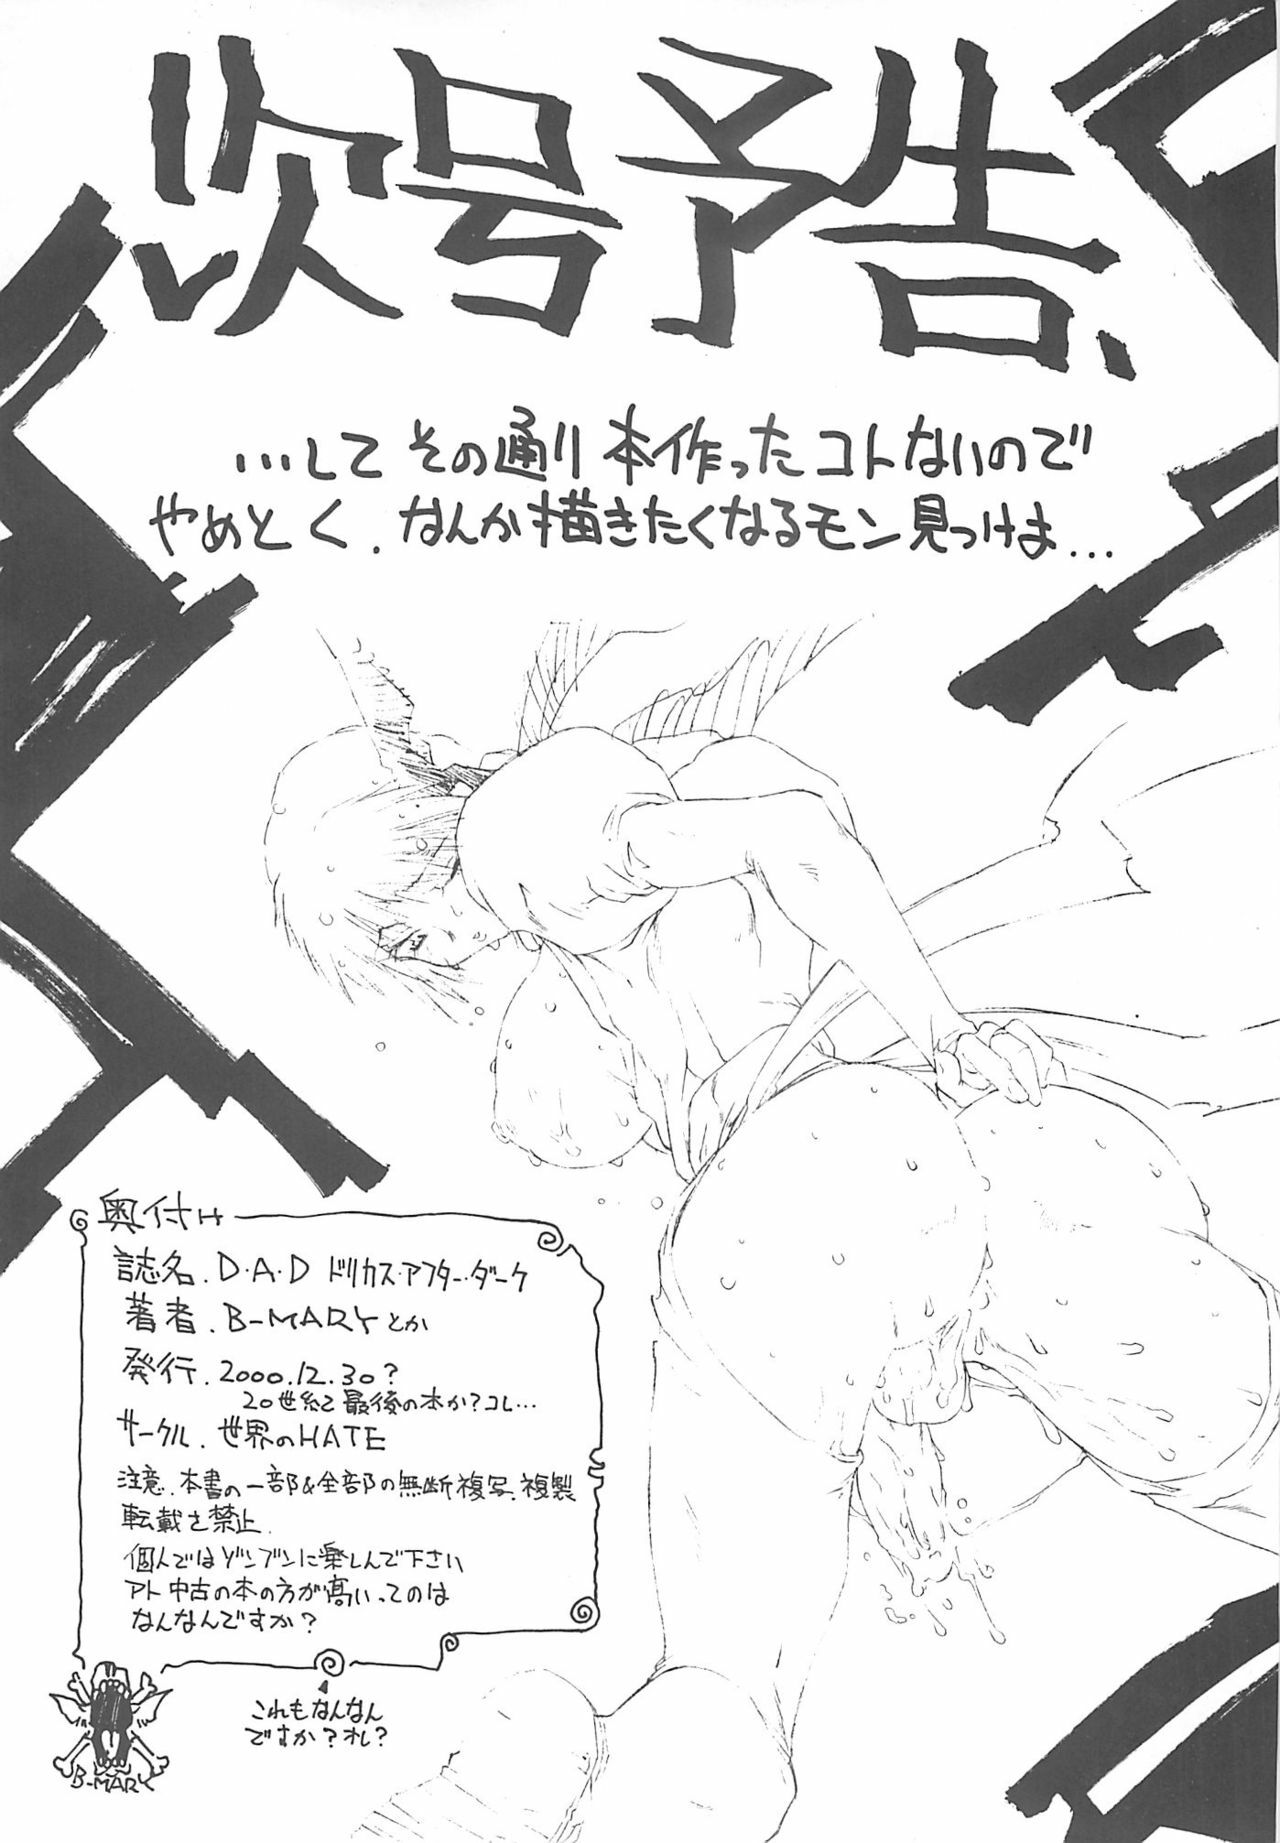 次号予告、
…して その通り 本作った コトないので
やめとく. なんか描きたくなるモン見つけま…
奥付け
誌名. D・A・D ドリカス・アフター・ダーク
著者. B-MARYとか
発行. 2000.12.30?
20世紀 最後の本か?コレ…
サークル. 世界のHATE
注意. 本書の一部&全部の無断複写.複製
転載を禁止.
個人ではゾンブンに楽しんで下さい
アト 中古の本の方が高いってのは
なんなんですか?
これもなんなん
ですか?オレ?
B-MARY